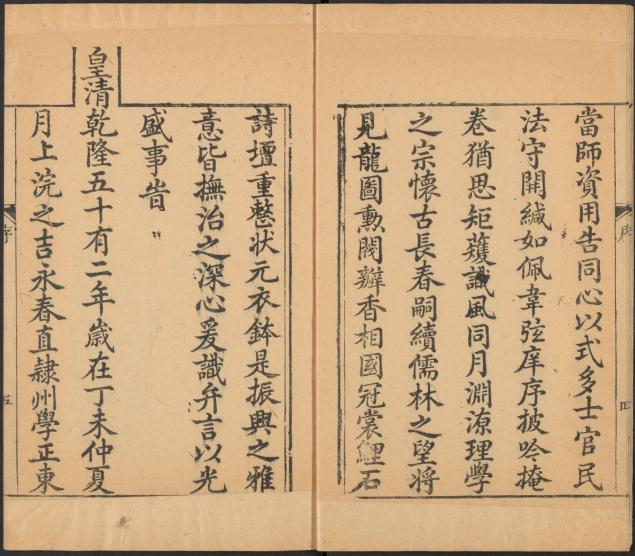 當師資用告同心以式多士官民
法守開緘如佩韋弦庠序披吟掩
卷猶思矩矱識風同月淵源理學
之宗懷古長春嗣續儒林之望將
見龍圖勳閥辦香相國冠裳鯉石
序
四
詩壇重整狀元衣鉢是振興之雅
意皆撫治之深心爰識弁言以光
盛事旹
皇清乾隆五十有二年歲在丁未仲夏
月上浣之吉永春直隸州學正東
序
五